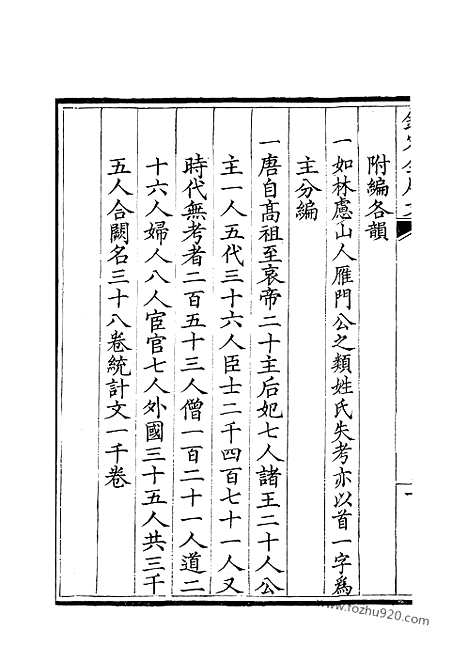 附編各韻
一如林慮山人雁門公之類姓氏失考亦以首一字為
主分編
一唐自髙祖至哀帝二十主后妃七人諸王二十人公
主一人五代三十六人臣士二千四百七十一人又
時代無考者二百五十三人僧一百二十一人道二
十六人婦人八人宦官七人外國三十五人共三千
五人合闕名三十八卷統計文一千卷
www.fozhu920.com